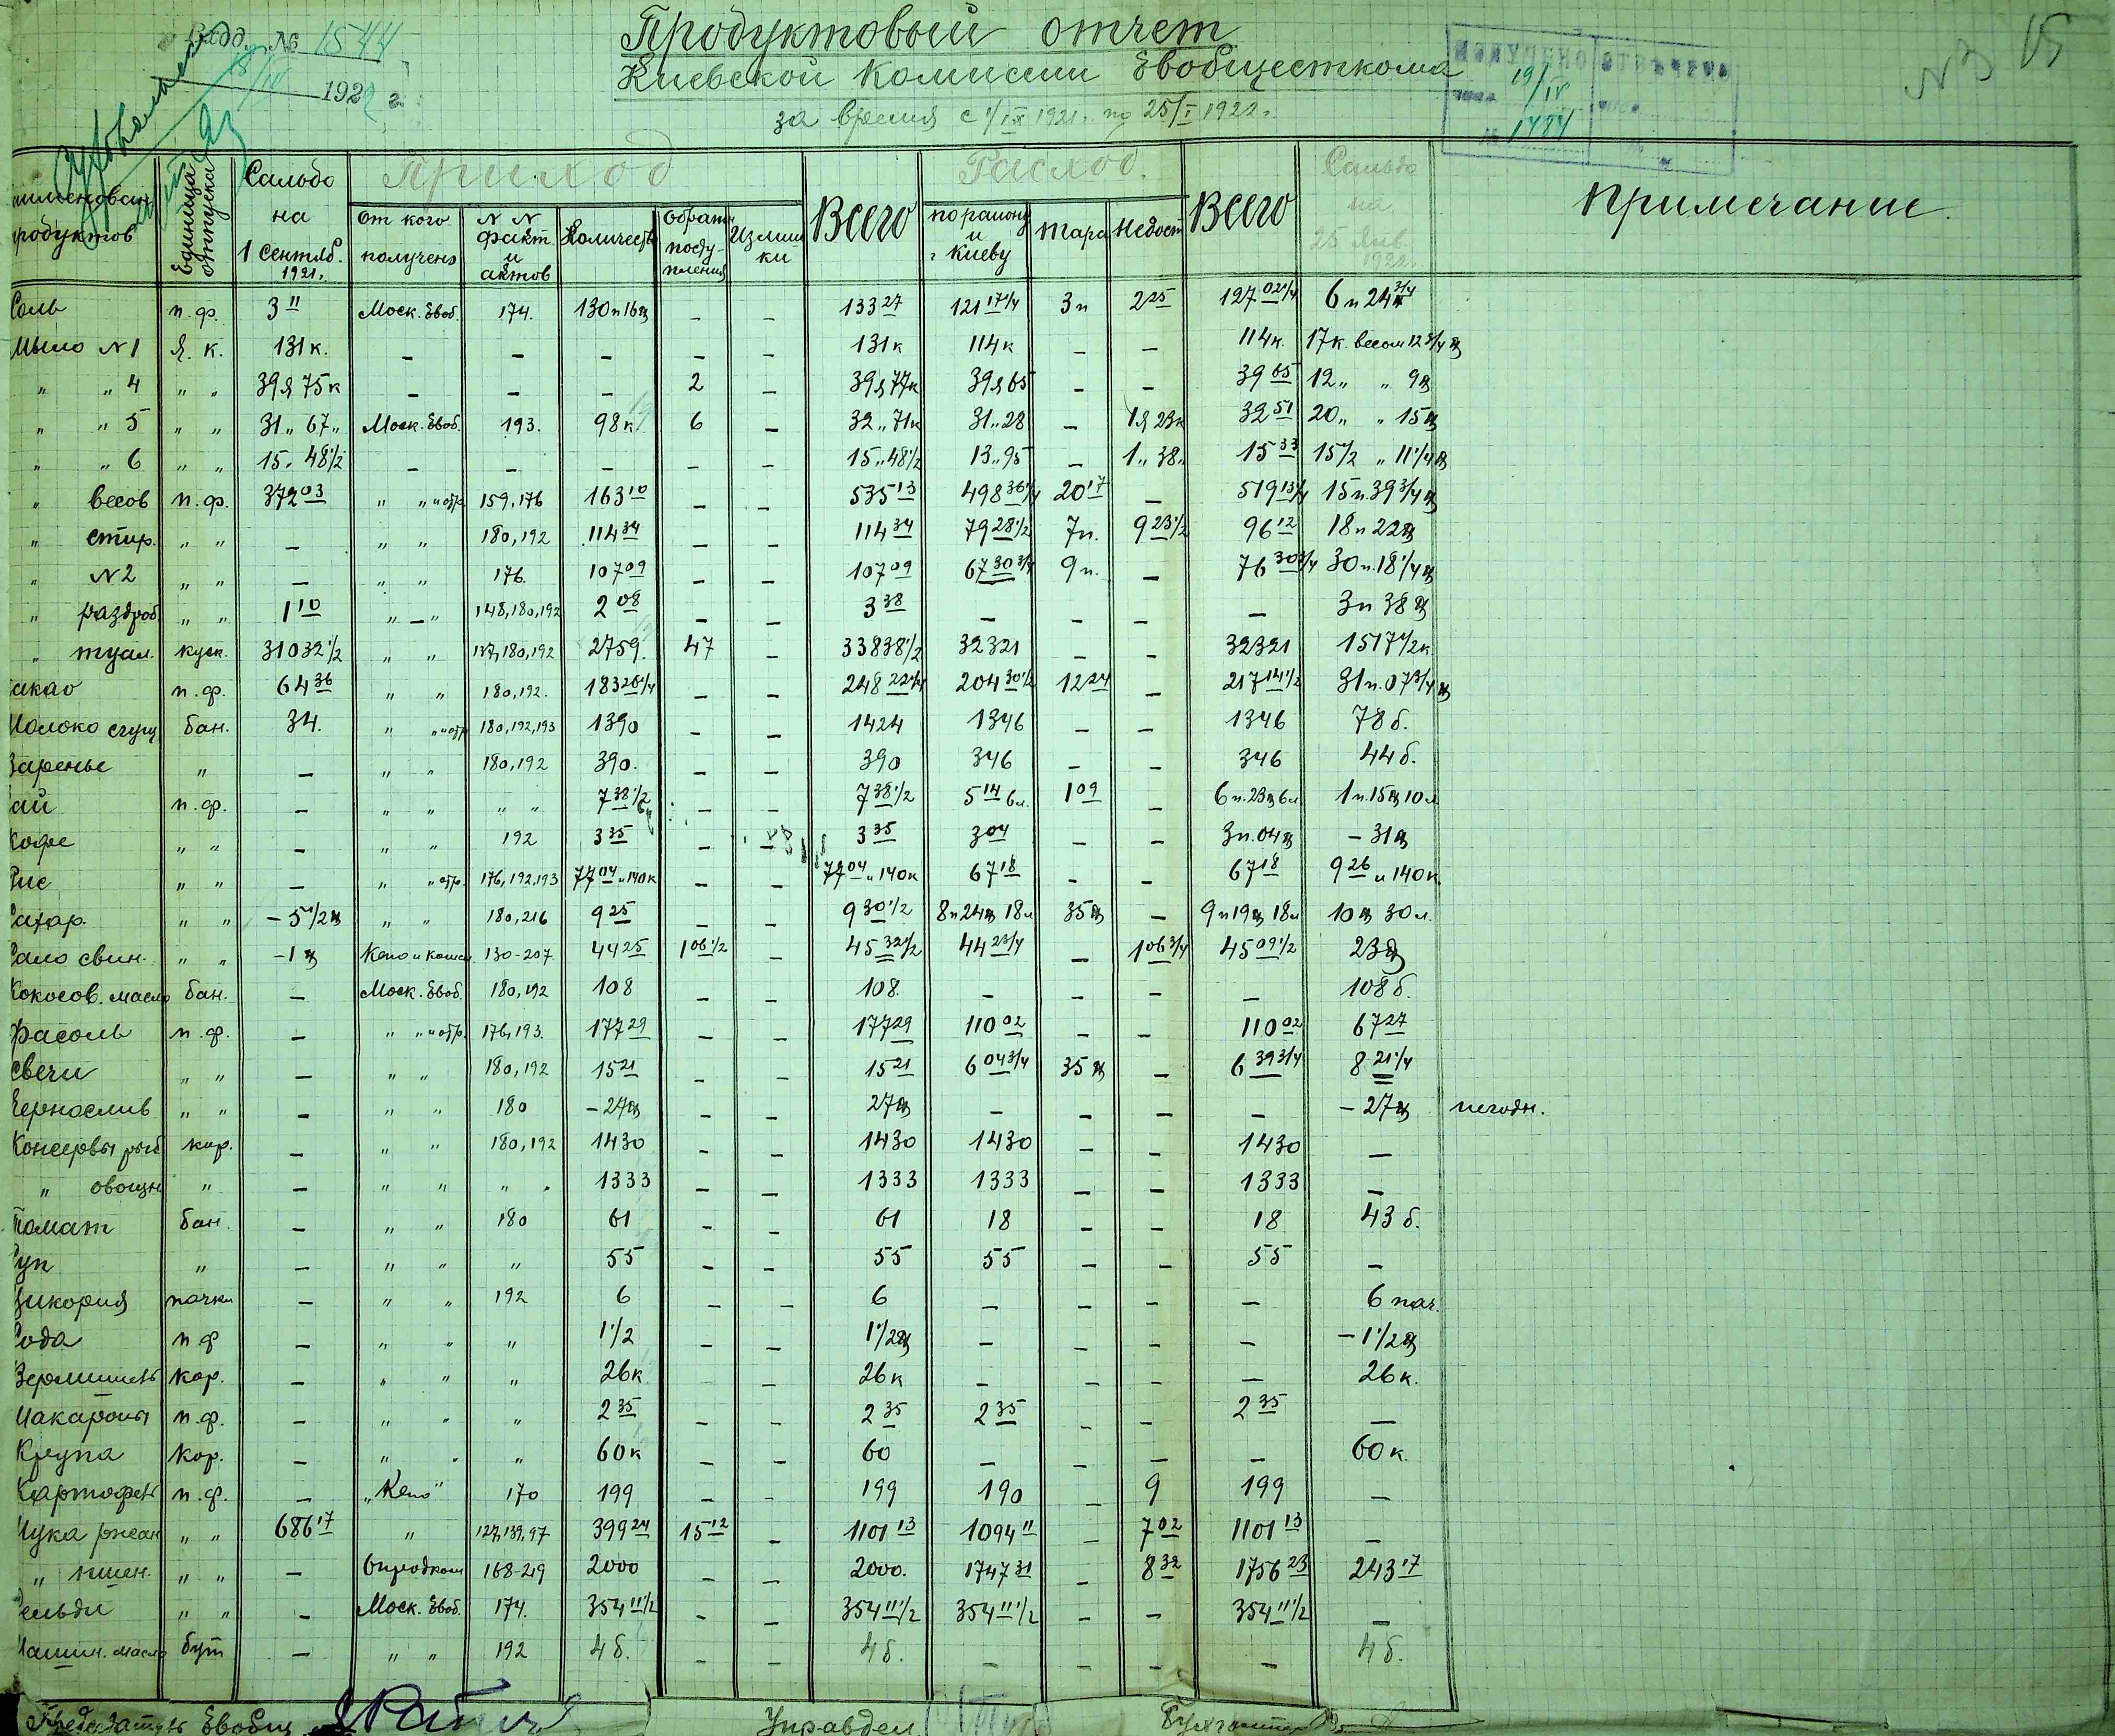 № 1544
1922 г.
Продуктовый отчет
Киевской Комиссии Евобщесткома
за время с 1/IX 1921 г. по 25/I 1922 г.
19/IV
1484
N 3 15
Приход Расход
Наименован. продуктов Единица отпуска Сальдо на 1 сентяб. 1921 г. От кого получено N N факт. и актов Количеств Обратн. посту- пления Излиш ки Всего по району и г. Киеву тара недост Всего Сальдо на 25 Янв. 1922 г. Примечание
Соль п. ф. 3 11 Моск. Евоб. 174. 130 п 16 ф — — 133 27 121 17 1/4 3 п 2 25 127 02 1/4 6 п 24 3/4
Мыло N 1 Я. К. 131 к. — — — — — 131 к 114 к — — 114 к. 17 к. весом 12 3/4 ф
„ „ 4 „ „ 39 я 75 к — — — 2 — 39 я 77 к 39 я 65 — — 39 65 12 „ „ 9 ф
„ „ 5 „ „ 31 „ 67 „ Моск. Евоб. 193. 98 к. 6 — 32 „ 71 к 31 „ 28 — 1 я 23 к 32 51 20 „ „ 15 ф
„ „ 6 „ „ 15 „ 48 1/2 — — — — — 15 „ 48 1/2 13 „ 95 — 1 „ 38 „ 15 33 15 1/2 „ 11 1/4 ф
„ весов п. ф. 372 03 „ „ и отр. 159, 176 163 10 — — 535 13 498 36 1/4 20 17 — 519 13 1/4 15 п. 39 3/4 ф
„ стир. „ „ — „ „ 180, 192 114 34 — — 114 34 79 28 1/2 7 п. 9 23 1/2 96 12 18 п 22 ф
„ N 2 „ „ — „ „ 176. 107 09 — — 107 09 67 30 3/4 9 п. — 76 30 3/4 30 п. 18 1/4 ф
„ раздроб „ „ 1 10 „ — „ 148, 180, 192 2 08 — — 3 38 — — — — 3 п 38 ф
„ туал. куск. 31032 1/2 „ „ 137, 180, 192 2759. 47 — 33838 1/2 32321 — — 32321 1517 1/2 к
Какао п. ф. 64 36 „ „ 180, 192. 183 26 1/4 — — 248 22 1/4 204 30 1/2 12 24 — 217 14 1/2 31 п. 07 3/4 ф
Молоко сгущ бан. 34. „ „ и отр 180, 192, 193 1390 — — 1424 1346 — — 1346 78 б.
Варенье „ — „ „ 180, 192 390. — — 390 346 — — 346 44 б.
Чай п. ф. — „ „ „ „ 7 38 1/2 — — 7 38 1/2 5 14 6 л. 1 09 — 6 п. 23 ф 6 л. 1 п. 15 ф 10 л
Кофе „ „ — „ „ 192 3 35 — — 3 35 3 04 — — 3 п. 04 ф — 31 ф
Рис „ „ — „ „ отр. 176, 192, 193 77 04 и 140 к — — 77 04 и 140 к 67 18 — — 67 18 9 26 и 140 к.
Сахар. „ „ — 5 1/2 ф „ „ 180, 216 9 25 — — 9 30 1/2 8 п 24 ф 18 л 35 ф — 9 п 19 ф 18 л 10 ф 30 л.
Сало свин. „ „ — 1 ф Кепо и 130-207 44 25 1 06 1/2 — 45 32 1/2 44 2 3/4 — 1 06 3/4 45 09 1/2 23 ф
Кокосов. масло бан. — Моск. Евоб. 180, 192 108 — — 108. — — — — 108 б.
Фасоль п. ф. — „ „ и отр. 176, 193. 177 29 — — 177 29 110 02 — — 110 02 67 27
Свечи „ „ — „ „ 180, 192 15 21 — — 15 21 6 04 3/4 35 ф — 6 39 3/4 8 21 1/4
Чернослив „ „ — „ „ 180 — 27 ф — — 27 ф — — — — — 27 ф негодн.
Консервы рыб кор. — „ „ 180, 192 1430 — — 1430 1430 — — 1430 —
„ овощн „ — „ „ „ „ 1333 — — 1333 1333 — — 1333 —
Томат бан. — „ „ 180 61 — — 61 18 — — 18 43 б.
Суп „ — „ „ „ 55 — — 55 55 — — 55 —
Цикория пачки — „ „ 192 6 — — 6 — — — — 6 пач.
Сода п ф — „ „ „ 1 1/2 — — 1 1/2 ф — — — — — 1 1/2 ф
Вермишель кор. — „ „ „ 26 к — — 26 к — — — — 26 к.
Макароны п. ф. — „ „ „ 2 35 — — 2 35 2 35 — — 2 35 —
Крупа кор. — „ „ „ 60 к — — 60 — — — — 60 к.
Картофель п. ф. — „Кепо“ 170 199 — — 199 190 — 9 199 —
Мука ржан „ „ 686 17 „ 127, 139, 97 399 24 15 12 — 1101 13 1094 11 — 7 02 1101 13 —
„ пшен. „ „ — Опродком 168-219 2000 — — 2000. 1747 31 — 8 32 1756 23 243 17
Сельди „ „ — Моск. Евоб. 174. 354 11 1/2 — — 354 11 1/2 354 11 1/2 — — 354 11 1/2 —
Машин. масло бут — „ „ 192 4 б. — — 4 б. — — — — 4 б.
Председатель Евобщ Управдел Бухгалтер